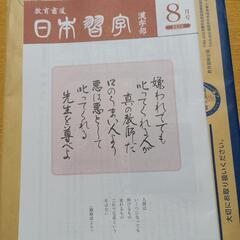 教育書道
日本習字
漢字部
8
月号
嫌われても
叱ってくれる人が
真の教師だ
口のうまい人より
悪は悪として
叱ってくれる
先生を尊べよ
大切にお取り扱いください。